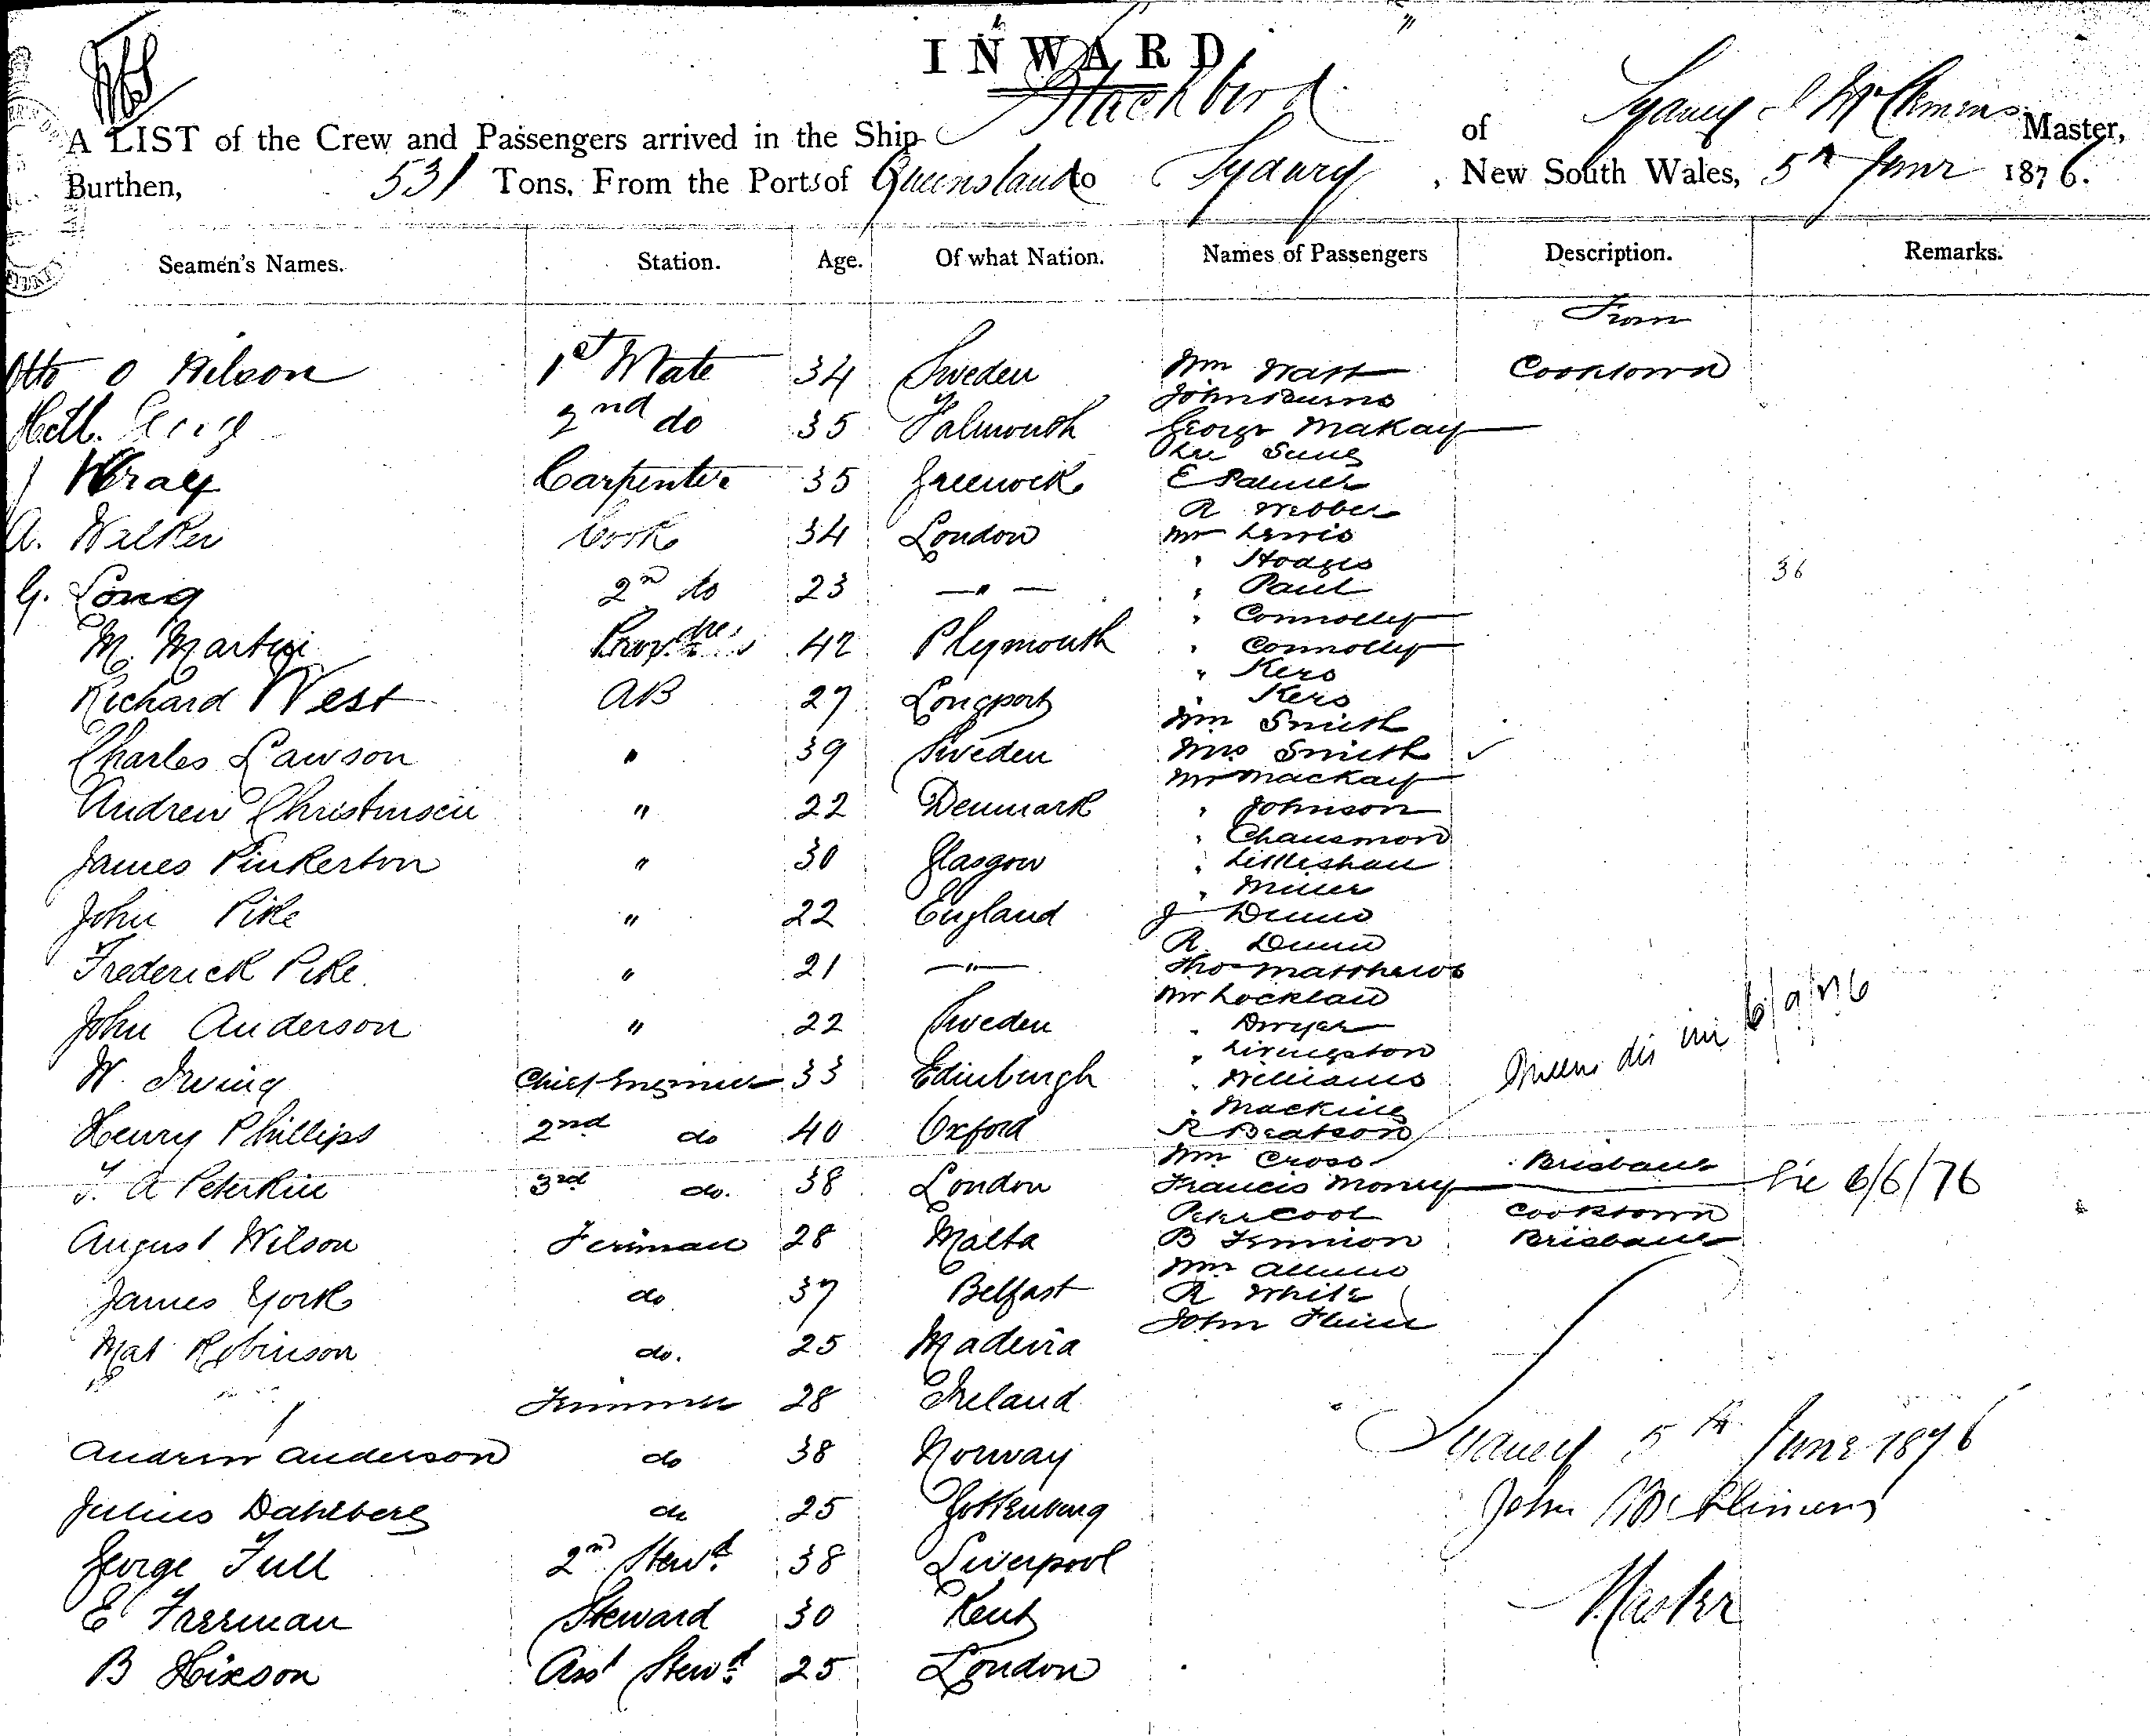 INWARD
A LIST of the Crew and Passengers arrived in the Ship Blackbird of Sydney J McClemens Master,
Burthen, 531 Tons, From the Ports of Queensland to Sydney, New South Wales, 5th June 1876.
Seamen's Names. Station. Age. Of what Nation. Names of Passengers Description. Remarks.
From
Otto O Nilson 1st Mate 34 Sweden Wm Watt Cooktown
John Burns
2nd do 35 Falmouth George Makay
Lee Sung
J Wray Carpenter 35 Greenock E Palmer
R Webber
A. Walker Cook 34 London Mr Lewis
" Hodges
G. Long 2nd do 23 —"— " Paul 36
" Connolly
M. Martin 42 Plymouth " Connolly
" Kers
Richard West AB 27 Longport " Kers
Wm Smith
Charles Lawson " 39 Sweden Mrs Smith ✓
Mr Mackay
Andrew Christinsen " 22 Denmark " Johnson
" Chausmond
James Pinkerton " 30 Glasgow " Littleshau
" Miller
John Pike " 22 England J Dunn
R. Dunn
Frederick Pike " 21 —"— Tho Matthews
Mr Locklan
John Anderson " 22 Sweden " Dwyer
" Livingston
W. Irving Chief Engineer 33 Edinburgh " Williams dis 6/9/76
" Mackins
Henry Phillips 2nd do 40 Oxford R Beatson
Wm Cross Brisbane
T. A Peterkin 3rd do. 38 London Francis Money 6/6/76
Peter Cool Cooktown
August Wilson Fireman 28 Malta B Fennion Brisbane
Wm
James York do 37 Belfast R White
John
Mat Robinson do. 25 Madeira
Trimmer 28 Ireland
Andrew Anderson do 38 Norway Sydney 5th June 1876
Julius Dahlberg do 25 Gottenburg John McClemens
George Tull 2nd Stewd 38 Liverpool
E Freeman Steward 30 Kent Master
B Hixson Asst Stewd 25 London